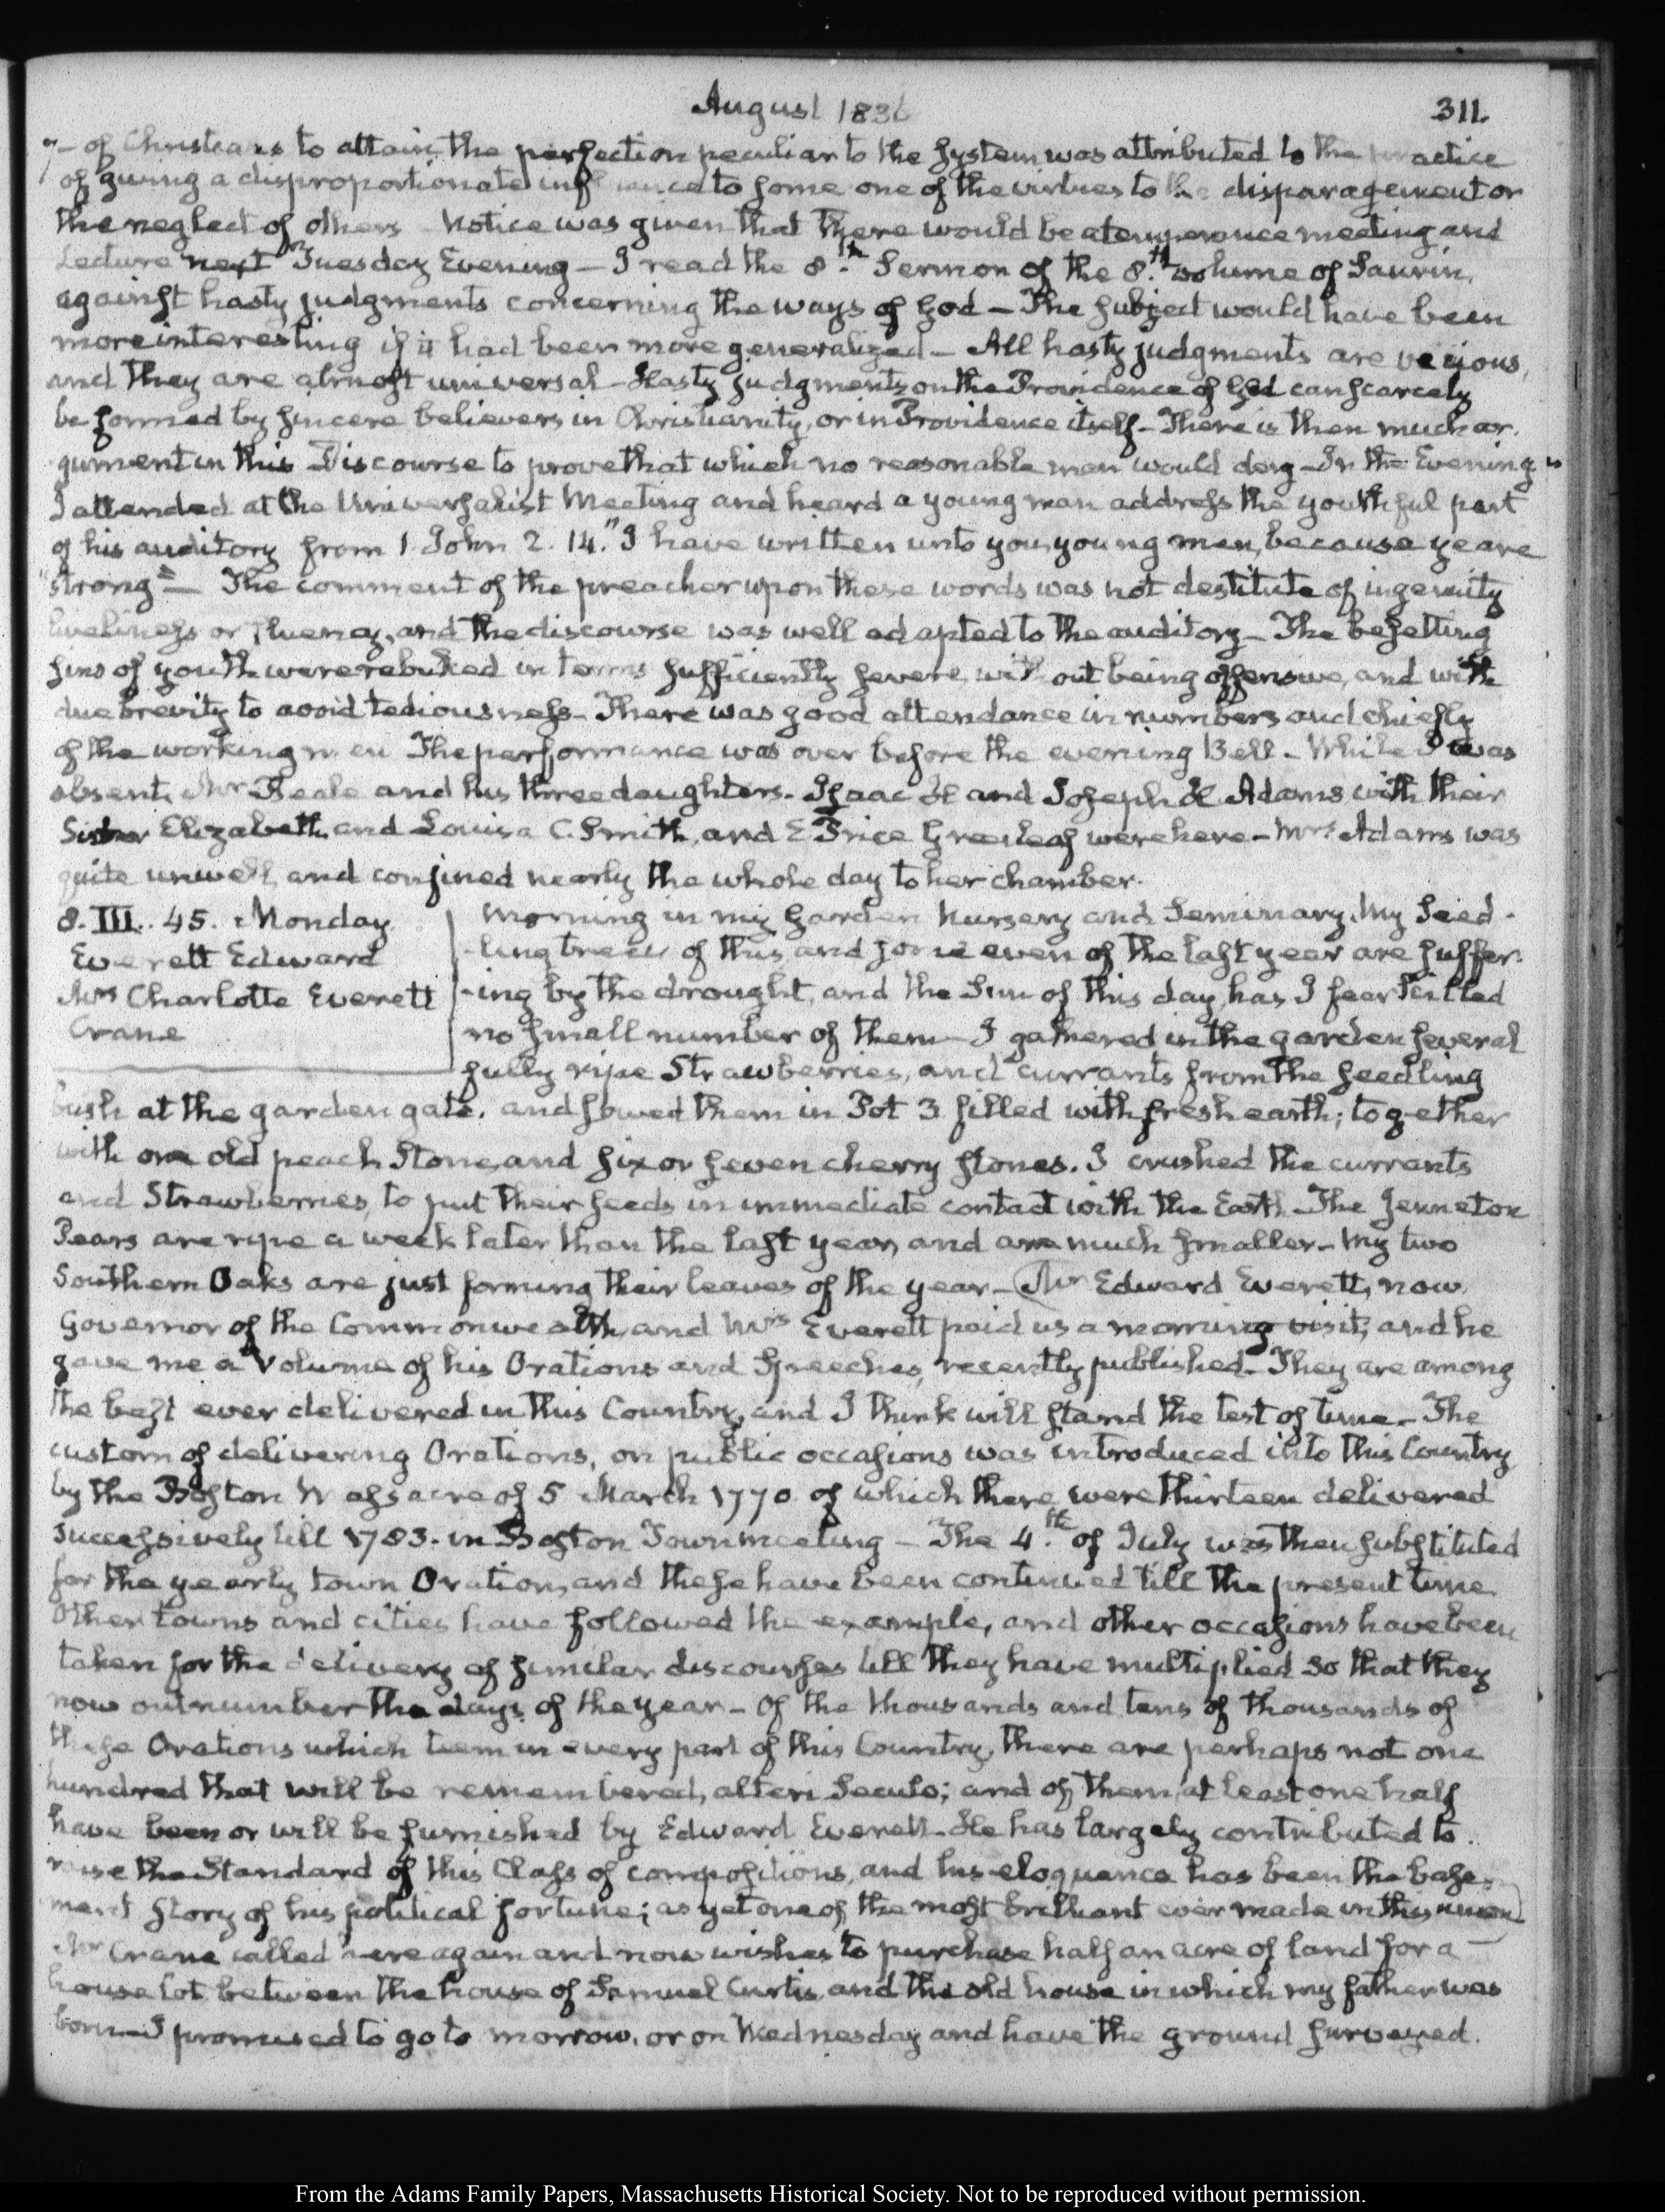 August 1836
311.
7- of Christians to attain the perfection peculiar to the system was attributed to the practice
of giving a disproportionate influence to some one of the virtues to the disparagement or
the neglect of others. Notice was given that there would be a temperance meeting and
Lecture next Tuesday Evening — I read the 8.th Sermon of the 8.th volume of Saurin,
against hasty judgments concerning the ways of God — The subject would have been
more interesting if it had been more generalized — All hasty judgments are vicious,
and they are almost universal — Hasty judgments on the Providence of God can scarcely
be formed by sincere believers in Christianity, or in Providence itself — There is then much ar-
gument in this Discourse to prove that which no reasonable man would deny — In the Evening
I attended at the Universalist Meeting and heard a young man address the youthful part
of his auditory from 1. John 2. 14. "I have written unto you, young men, because ye are
"strong" — The comment of the preacher upon these words was not destitute of ingenuity
liveliness or fluency, and the discourse was well adapted to the auditory — The besetting
sins of youth were rebuked in terms sufficiently severe, without being offensive, and with
due brevity to avoid tediousness — There was good attendance in numbers and chiefly
of the working men The performance was over before the evening Bell — While I was
absent, Mr Beale and his three daughters — Isaac H and Joseph H Adams, with their
Sister Elizabeth, and Louisa C. Smith, and E Price Greenleaf were here — Mrs Adams was
quite unwell, and confined nearly the whole day to her chamber.
8. III.. 45. Monday
Everett Edward
Mrs Charlotte Everett
Crane
Morning in my Garden Nursery and Seminary. My Seed-
-ling trees of this and some even of the last year are suffer-
-ing by the drought, and the Sun of this day, has I fear killed
no small number of them — I gathered in the garden several
fully ripe Strawberries, and currants from the seedling
bush at the garden gate, and sowed them in Pot 3 filled with fresh earth; together
with one old peach Stone, and six or seven cherry stones. I crushed the currants
and Strawberries, to put their seeds in immediate contact with the Earth — The Jenneton
Pears are ripe a week later than the last year, and are much smaller — My two
Southern Oaks are just forming their leaves of the year — Mr Edward Everett, now
Governor of the Commonwealth, and Mrs Everett paid us a morning visit, and he
gave me a Volume of his Orations and Speeches, recently published — They are among
the best ever delivered in this Country, and I think will stand the test of time — The
custom of delivering Orations, on public occasions was introduced into this Country
by the Boston Massacre of 5 March 1770 of which there were thirteen delivered
successively till 1783. in Boston Town meeting — The 4.th of July was then substituted
for the yearly town Oration, and these have been continued till the present time
Other towns and cities have followed the example, and other occasions have been
taken for the delivery of similar discourses till they have multiplied so that they
now outnumber the days of the year — Of the thousands and tens of thousands of
these Orations which teem in every part of this Country, there are perhaps not one
hundred that will be remembered, alteri Seculo; and of them, at least one half
have been or will be furnished by Edward Everett — He has largely contributed to
raise the Standard of this Class of compositions, and his eloquence has been the base-
ment story of his political fortune; as yet one of the most brilliant ever made in this union
Mr Crane called here again and now wishes to purchase half an acre of land for a
house lot between the house of Samuel Curtis, and the old house in which my father was
born — I promised to go to morrow, or on Wednesday and have the ground surveyed.
From the Adams Family Papers, Massachusetts Historical Society. Not to be reproduced without permission.